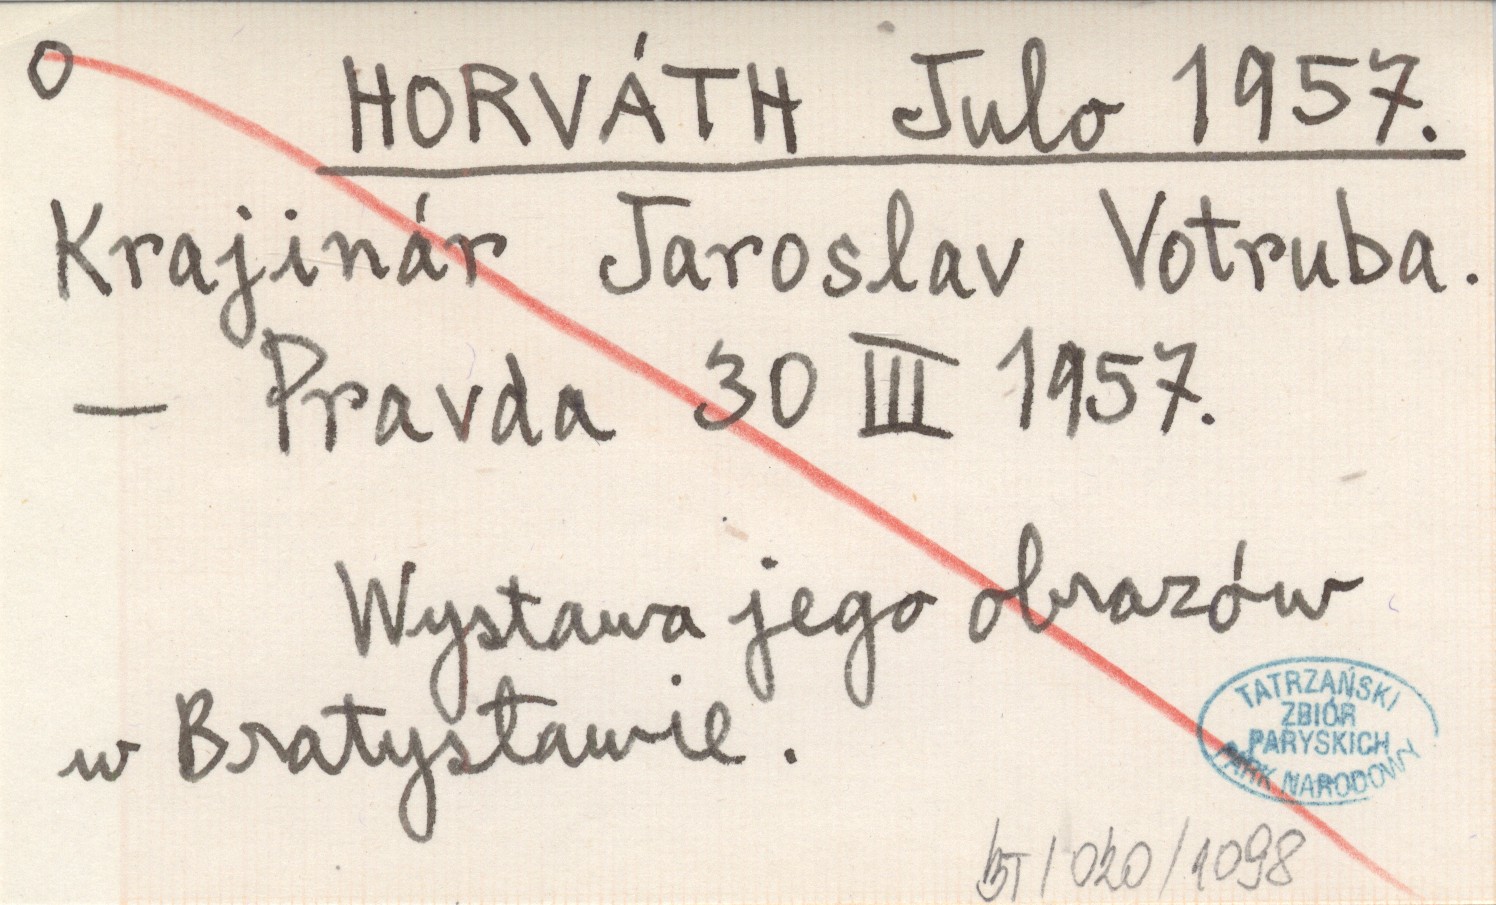 O HORVÁTH Julo 1957.
Krajinár Jaroslav Votruba.
— Pravda 30 III 1957.
Wystawa jego obrazów
w Bratysławie.
TATRZAŃSKI
ZBIÓR
PARYSKICH
PARK NARODOWY
/020/1098